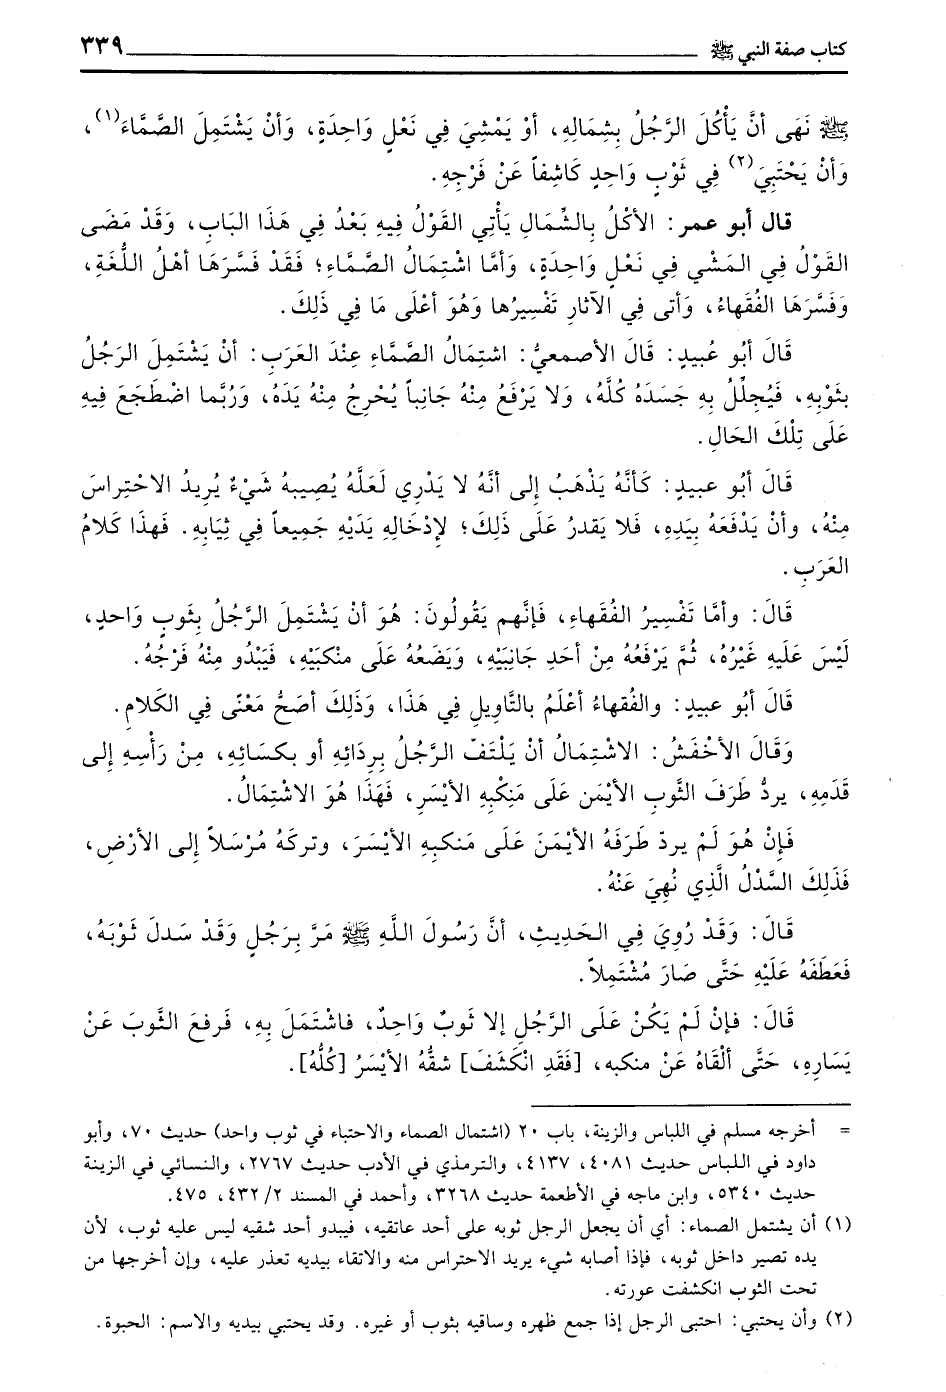 كتاب صفة النبي ﷺ ٣٣٩
ﷺ نَهَى أنَّ يَأْكُلَ الرَّجُلُ بِشِمَالِهِ، أوْ يَمْشِيَ فِي نَعْلٍ وَاحِدَةٍ، وَأنْ يَشْتَمِلَ الصَّمَّاءَ(١)،
وَأنْ يَحْتَبِيَ(٢) فِي ثَوْبٍ وَاحِدٍ كَاشِفاً عَنْ فَرْجِهِ.
قال أبو عمر: الأكْلُ بِالشِّمَالِ يَأْتِي القَوْلُ فِيهِ بَعْدُ فِي هَذَا البَابِ، وَقَدْ مَضَى
القَوْلُ فِي المَشْي فِي نَعْلٍ وَاحِدَةٍ، وَأمَّا اشْتِمَالُ الصَّمَّاءِ؛ فَقَدْ فَسَّرَهَا أهْلُ اللُّغَةِ،
وَفَسَّرَهَا الفُقَهاءُ، وَأتى فِي الآثارِ تَفْسِيرُها وَهُوَ أعْلَى مَا فِي ذَلِكَ.
قَالَ أبُو عُبيدٍ: قَالَ الأصمعيُّ: اشتِمَالُ الصَّمَّاءِ عِنْدَ العَرَبِ: أنْ يَشْتَمِلَ الرَجُلُ
بثَوْبِهِ، فَيُجلِّلُ بِهِ جَسَدَهُ كُلَّهُ، وَلا يَرْفَعُ مِنْهُ جَانِباً يُخْرِجُ مِنْهُ يَدَهُ، وَرُبَّما اضْطَجَعَ فِيهِ
عَلَى تِلْكَ الحَالِ.
قَالَ أبُو عبيدٍ: كَأنَّهُ يَذْهَبُ إلى أنَّهُ لا يَدْرِي لَعَلَّهُ يُصِيبهُ شَيْءٌ يُرِيدُ الاحْتِراسَ
مِنْهُ، وأنْ يَدْفَعَهُ بِيَدِهِ، فَلا يَقدرُ عَلَى ذَلِكَ؛ لإدْخَالِهِ يَدَيْهِ جَمِيعاً فِي ثِيَابِهِ. فَهذَا كَلامُ
العَرَبِ.
قَالَ: وأمَّا تَفْسِيرُ الفُقَهاءِ، فَإنَّهم يَقُولُونَ: هُوَ أنْ يَشْتَمِلَ الرَّجُلُ بِثَوبٍ وَاحدٍ،
لَيْسَ عَلَيهِ غَيْرُهُ، ثُمَّ يَرْفَعُهُ مِنْ أحَدِ جَانِبَيْهِ، وَيَضَعُهُ عَلَى منْكبَيْهِ، فَيَبْدُو مِنْهُ فَرْجُهُ.
قَالَ أبُو عبيدٍ: والفُقهاءُ أعْلَمُ بالتَّاوِيلِ فِي هَذَا، وَذَلِكَ أصَحُّ مَعْنًى فِي الكَلامِ.
وَقَالَ الأخْفَشُ: الاشْتِمَالُ أنْ يَلْتَفّ الرَّجُلُ بِردَائِهِ أو بكسَائِهِ، مِنْ رَأْسِهِ إلى
قَدَمِهِ، يردُّ طَرَفَ الثَّوبِ الأيْمَن عَلَى مَنِكبِهِ الأيْسَرِ، فَهَذَا هُوَ الاشْتِمَالُ.
فَإنْ هُوَ لَمْ يردّ طَرَفَهُ الأيْمَنَ عَلَى مَنكبِهِ الأيْسَرَ، وتركَهُ مُرْسَلاً إلى الأرْضِ،
فَذَلِكَ السَّدْلُ الَّذِي نُهِيَ عَنْهُ.
قَالَ: وَقَدْ رُوِيَ فِي الحَدِيثِ، أنَّ رَسُولَ اللَّهِ ﷺ مَرَّ بِرَجُلٍ وَقَدْ سَدلَ ثَوْبَهُ،
فَعَطَفَهُ عَلَيْهِ حَتَّى صَارَ مُشْتَمِلاً.
قَالَ: فإنْ لَمْ يَكُنْ عَلَى الرَّجُلِ إلا ثَوبٌ وَاحِدٌ، فاشْتَمَلَ بِهِ، فَرفعَ الثَّوبَ عَنْ
يَسَارِهِ، حَتَّى ألْقَاهُ عَنْ منكبه، [فَقَدِ انْكَشَفَ] شقُّهُ الأيْسَرُ [كُلُّهُ].
= أخرجه مسلم في اللباس والزينة، باب ٢٠ (اشتمال الصماء والاحتباء في ثوب واحد) حديث ٧٠، وأبو
داود في اللباس حديث ٤٠٨١، ٤١٣٧، والترمذي في الأدب حديث ٢٧٦٧، والنسائي في الزينة
حديث ٥٣٤٠، وابن ماجه في الأطعمة حديث ٣٢٦٨، وأحمد في المسند ٢/ ٤٣٢، ٤٧٥.
(١) أن يشتمل الصماء: أي أن يجعل الرجل ثوبه على أحد عاتقيه، فيبدو أحد شقيه ليس عليه ثوب، لأن
يده تصير داخل ثوبه، فإذا أصابه شيء يريد الاحتراس منه والاتقاء بيديه تعذر عليه، وإن أخرجها من
تحت الثوب انكشفت عورته.
(٢) وأن يحتبي: احتبى الرجل إذا جمع ظهره وساقيه بثوب أو غيره. وقد يحتبي بيديه والاسم: الحبوة.